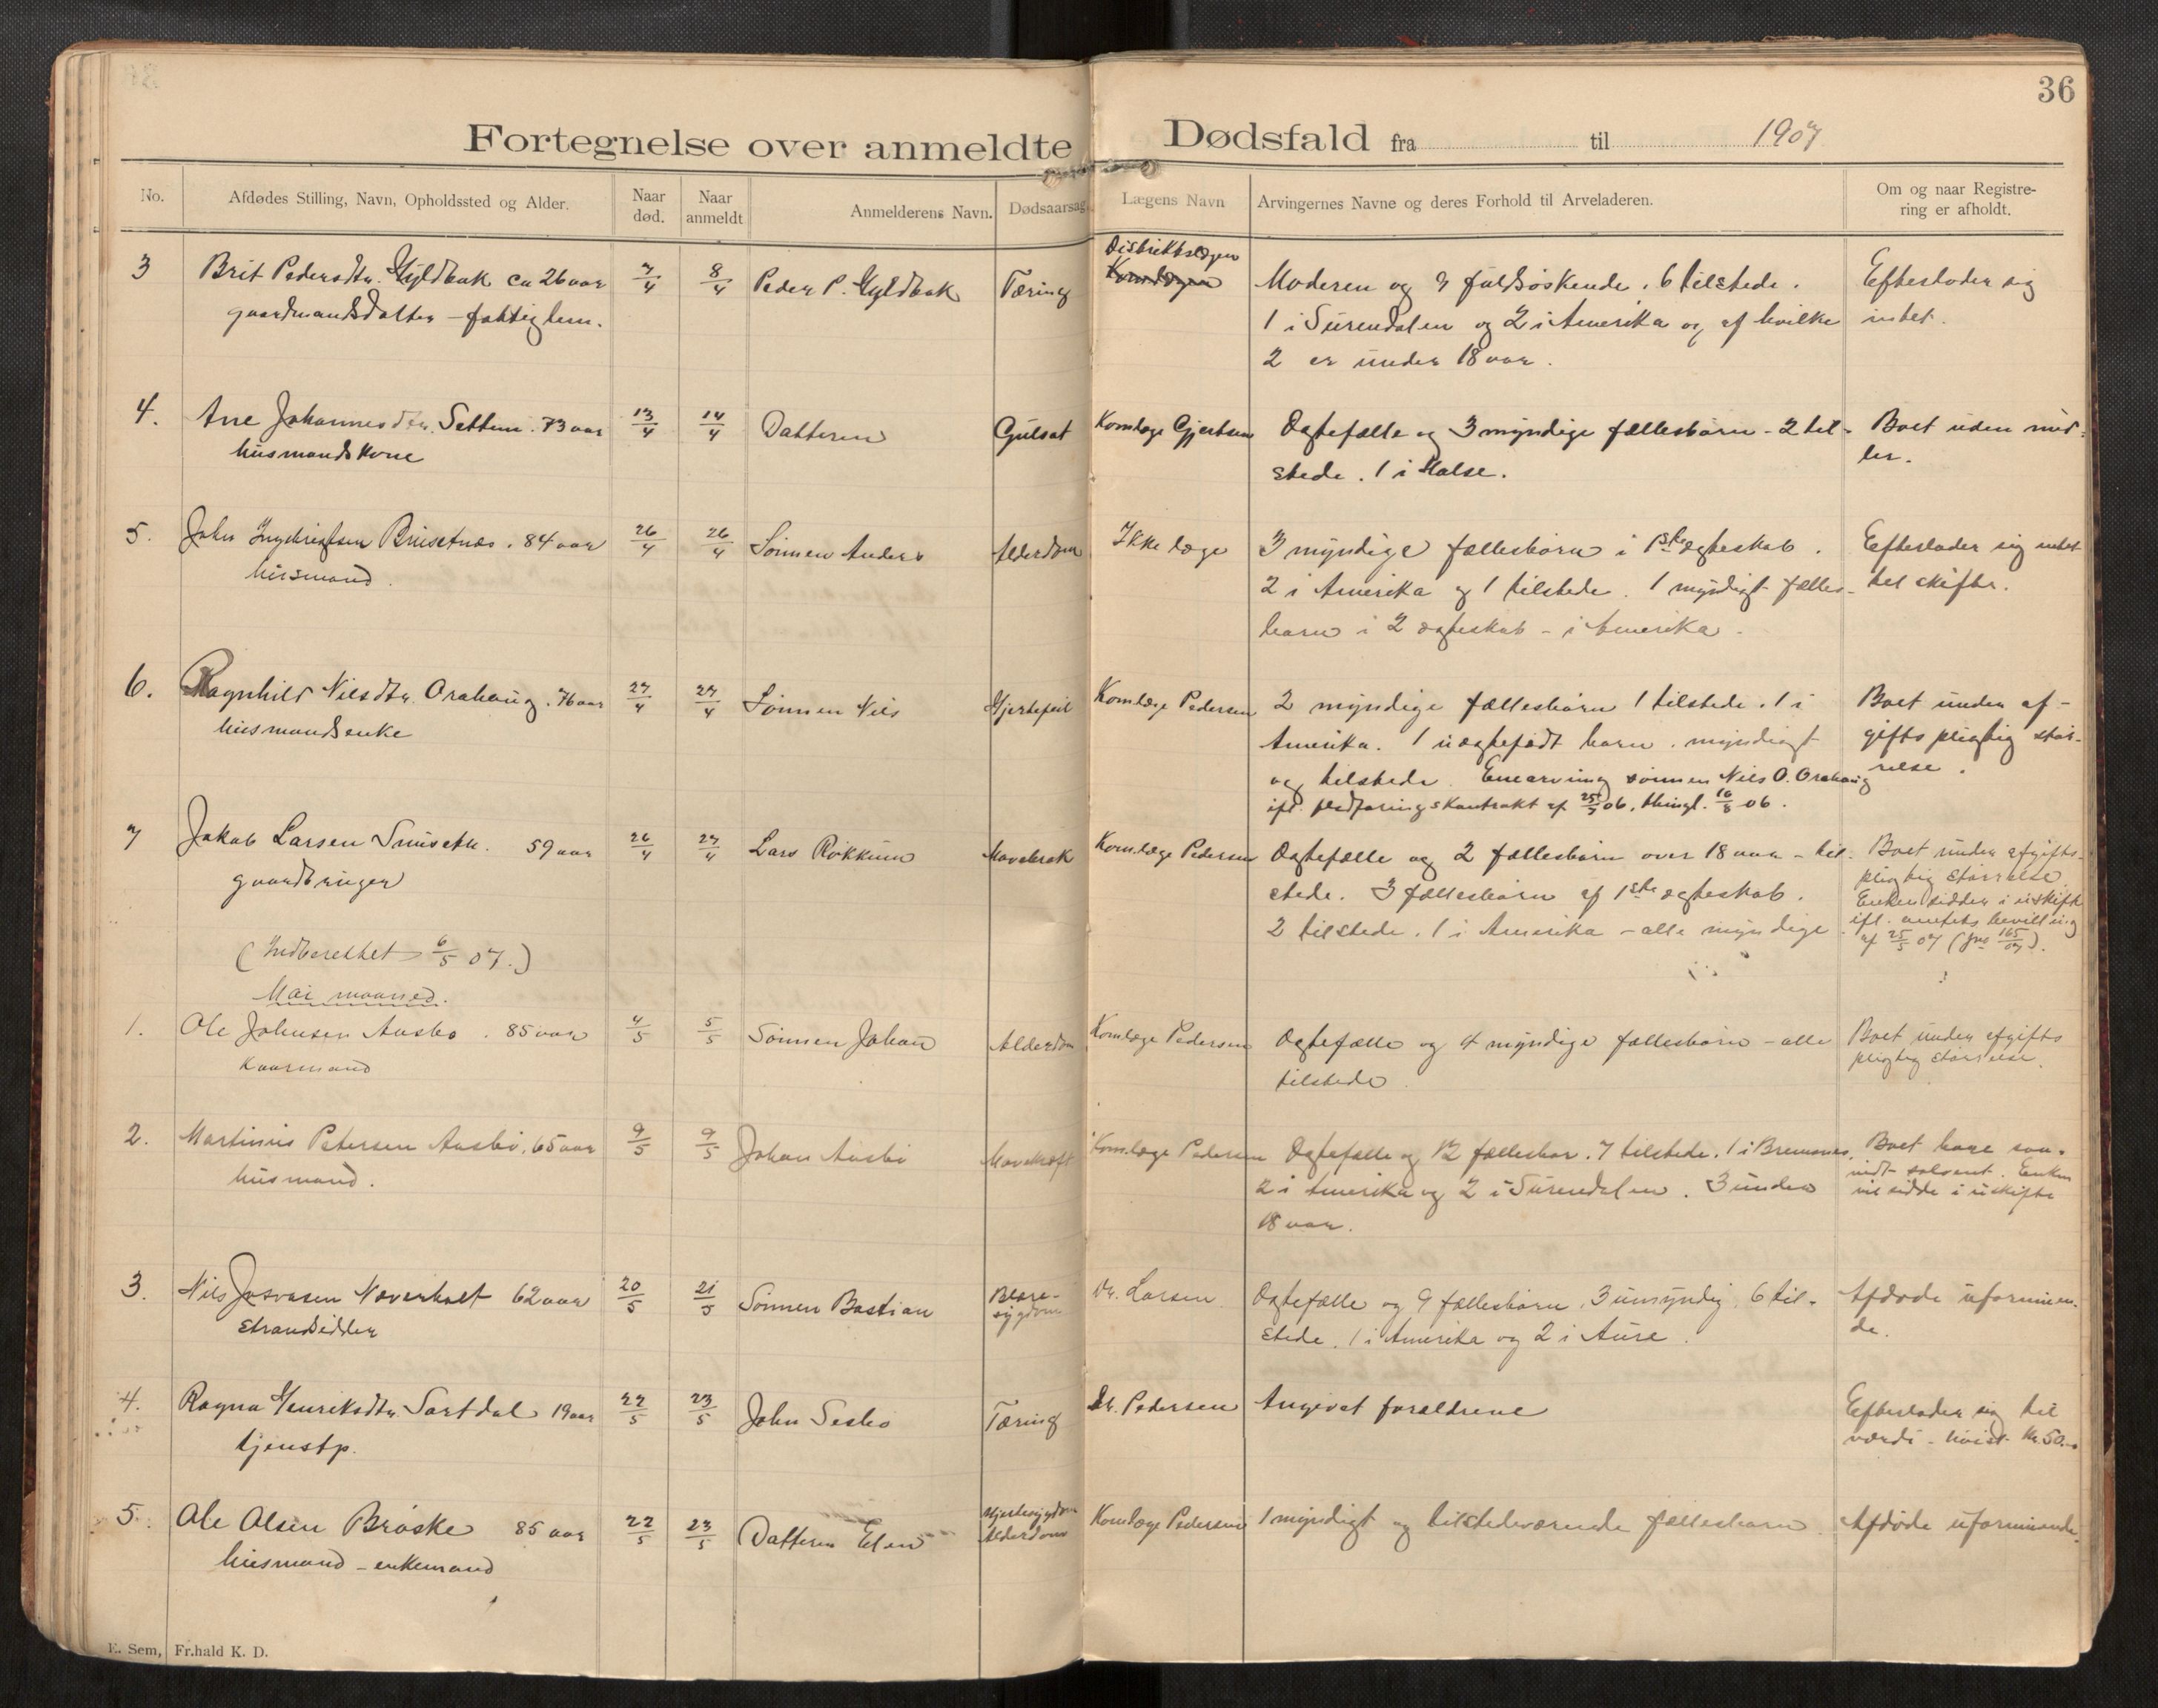 36
Fortegnelse over anmeldte Dødsfald fra til 1907
No. Afdødes Stilling, Navn, Opholdssted og Alder. Naar død. Naar anmeldt Anmelderens Navn. Dødsaarsag Lægens Navn Arvingernes Navne og deres Forhold til Arveladeren. Om og naar Registrering er afholdt.
3 Brit Pedersdtr. Gyldbak ca 26 aar 7/4 8/4 Peder P. Gyldbak Tæring Distriktslægen
gaardmandsdatter - fattiglem.
Moderen og 9 fuldsøskende. 6 tilstede.
1 i Surendalen og 2 i Amerika og af hvilke
2 er under 18 aar.
Efterlader sig
intet.
4. Ane Johannesdtr. Settem. 73 aar 13/4 14/4 Datteren Gulsot Komlæge Gjertsen
husmandskone
Ægtefælle og 3 myndige fællesbørn - 2 til-
stede. 1 i Halse.
Boet uden mid-
ler.
5. John Ingebrigtsen Brusetnæs. 84 aar 26/4 26/4 Sønnen Anders Alderdom Ikke læge
husmand.
3 myndige fællesbørn i 1ste ægteskab.
2 i Amerika og 1 tilstede. 1 myndigt fælles-
barn i 2 ægteskab - i Amerika -
Efterlader sig intet
til skifte.
6. Ragnhild Nilsdtr. Orahaug. 76 aar 27/4 27/4 Sønnen Nils Hjertefeil Komlæge Pedersen
husmandsenke
2 myndige fællesbørn 1 tilstede. 1 i
Amerika. 1 uægtefødt barn. myndigt
og tilstede. Enearving sønnen Nils O. Orahaug
ifl. fledføringskontrakt af 25/7 06, thingl. 16/8 06.
Boet under af-
gifts pligtig stør-
relse.
7 Jakob Larsen Smisetn. 59 aar 26/4 27/4 Lars Røkkum Mavebrok Komlæge Pedersen
gaardbruger
Ægtefælle og 2 fællesbørn over 18 aar - til-
stede. 3 fællesbørn af 1ste ægteskab.
2 tilstede. 1 i Amerika - alle myndige.
Boet under afgifts-
pligtig størrelse.
Enken sidder i uskifte
ifl. amtets bevilling
af 25/5 07 (jno 165/07).
(Indberettet 6/5 07.)
Mai maaned.
1. Ole Johnsen Aasbø. 85 aar 4/5 5/5 Sønnen Johan Alderdom Komlæge Pedersen
Kaarmand
Ægtefælle og 4 myndige fællesbørn - alle
tilstede.
Boet under afgifts
pligtig størrelse.
2. Martinus Petersen Aasbø. 65 aar 9/5 9/5 Johan Aasbø Mavekræft Komlæge Pedersen
husmand.
Ægtefælle og 12 fællesbør. 7 tilstede. 1 i Bremsnes.
2 i Amerika og 2 i Surendalen. 3 under
18 aar.
Boet bare saa-
vidt solvent. Enken
vil sidde i uskifte
3. Nils Josvasen Næverholt 62 aar 20/5 21/5 Sønnen Bastian Blære-
sygdom Dr. Larsen
strandsidder
Ægtefælle og 9 fællesbørn. 3 umyndig. 6 til-
stede. 1 i Amerika og 2 i Aure.
Afdøde uformuen-
de.
4. Ragna Henriksdtr. Sartdal 19 aar 22/5 23/5 John Sesbø Tæring Dr. Pedersen
tjenstp.
Angivet forældrene
Efterlader sig til
værdi - høist Kr. 50.-
5. Ole Olsen Brøske 85 aar 22/5 23/5 Datteren Elen Hjertesygdom
Alderdom Komlæge Pedersen
husmand - enkemand
1 myndigt og tilstedeværende fællesbarn.
Afdøde uformuende.
E. Sem, Fr.hald K. D.